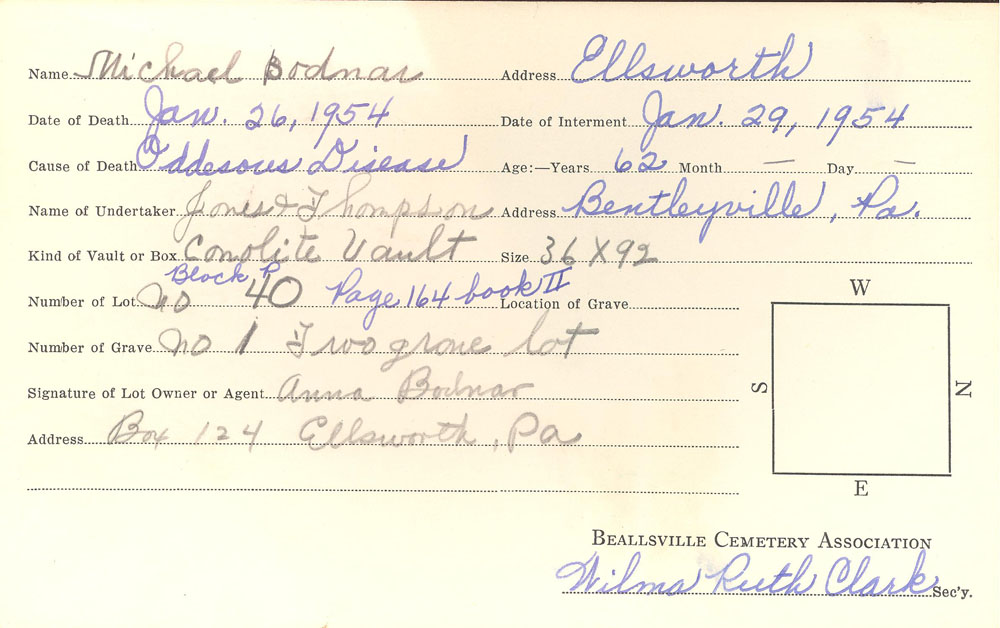 Name Michael Bodnar Address Ellsworth
Date of Death Jan. 26, 1954 Date of Interment Jan. 29, 1954
Cause of Death Oddesous Disease Age:—Years 62 Month — Day —
Name of Undertaker Jones & Thompson Address Bentleyville, Pa.
Kind of Vault or Box Conolite Vault Size 36 X 92
Block P
Number of Lot no 40 Page 164 book II Location of Grave
Number of Grave no 1 Two grave lot
Signature of Lot Owner or Agent Anna Bodnar
Address Box 124 Ellsworth, Pa
W
S
N
E
BEALLSVILLE CEMETERY ASSOCIATION
Wilma Ruth Clark Sec'y.